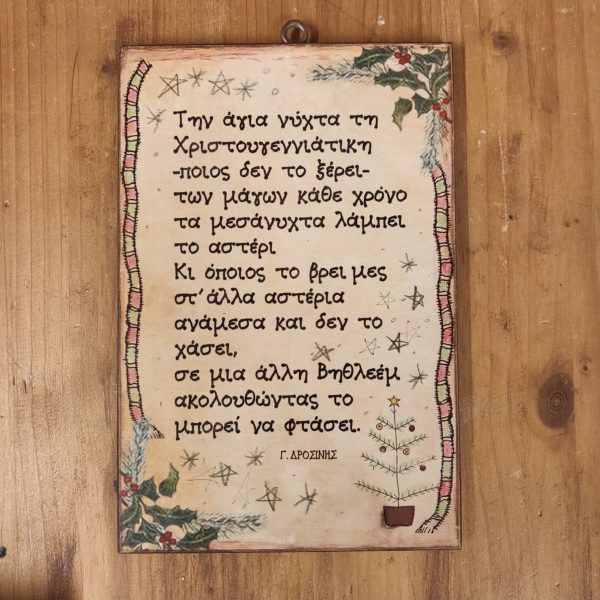 Την άγια νύχτα τη
Χριστουγεννιάτικη
-ποιος δεν το ξέρει-
των μάγων κάθε χρόνο
τα μεσάνυχτα λάμπει
το αστέρι
Κι όποιος το βρει μες
στ' άλλα αστέρια
ανάμεσα και δεν το
χάσει,
σε μια άλλη Βηθλεέμ
ακολουθώντας το
μπορεί να φτάσει.
Γ. ΔΡΟΣΙΝΗΣ